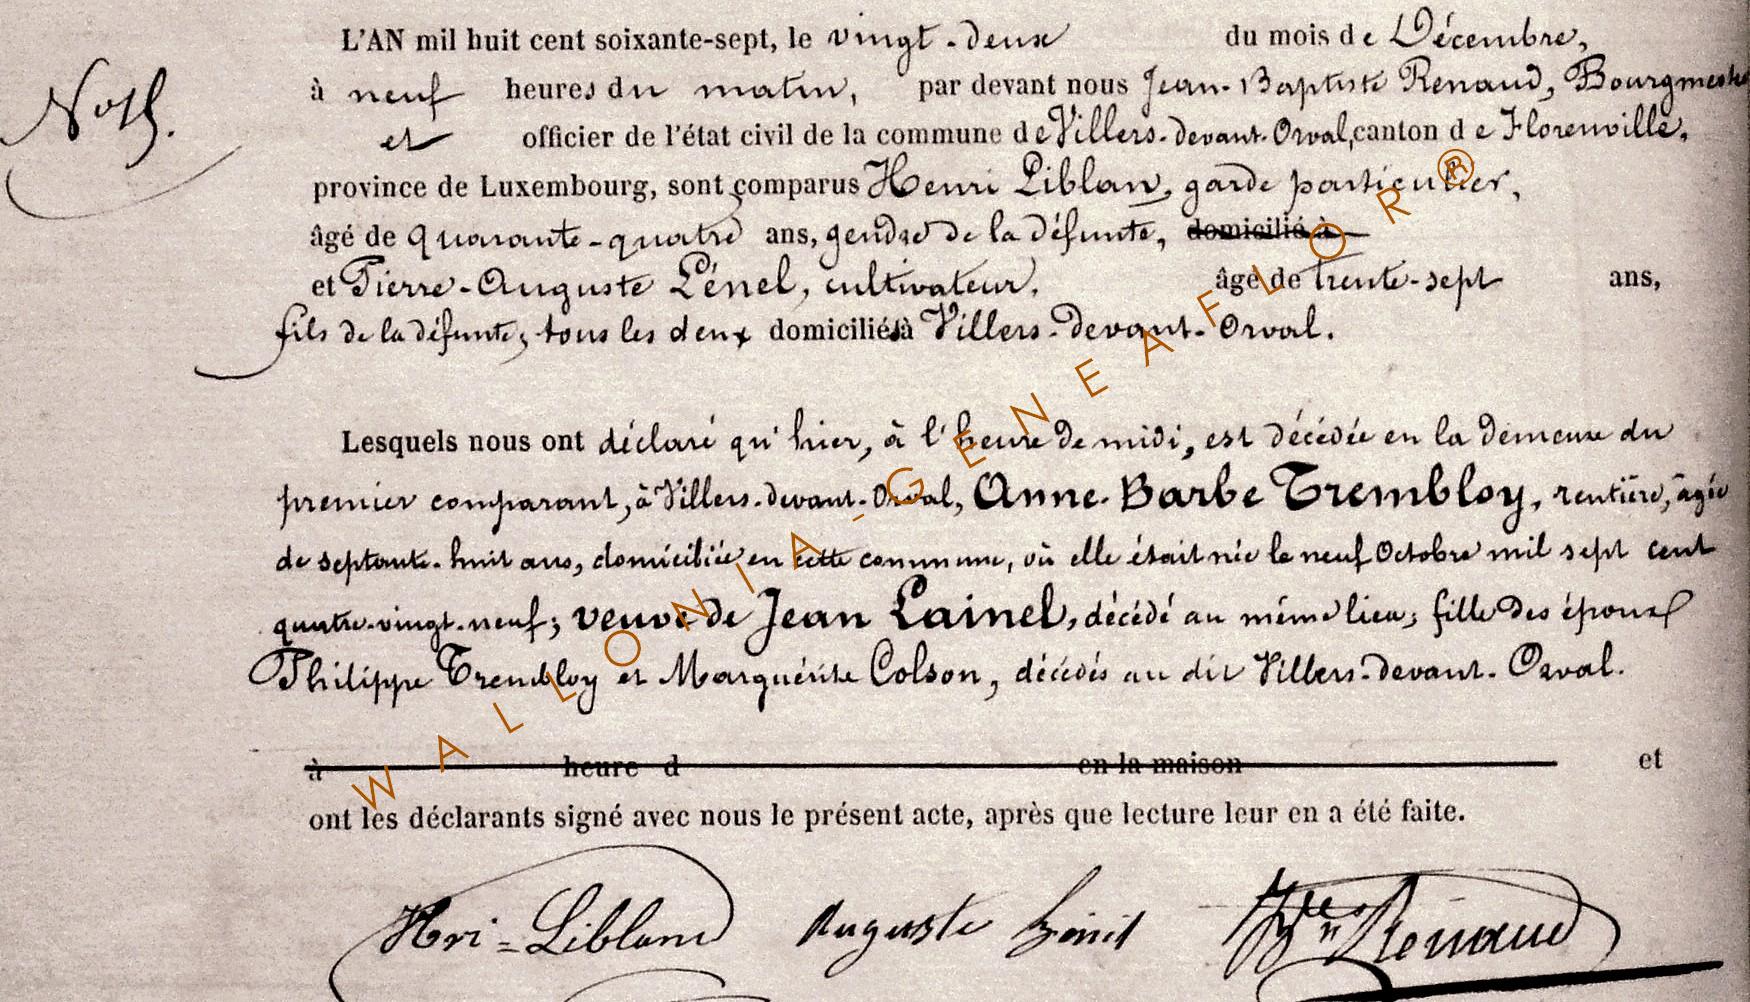 L'AN mil huit cent soixante-sept, le vingt-deux du mois de Décembre,
Noth.
à neuf heures du matin, par devant nous Jean-Baptiste Renaud, Bourgmestre
et officier de l'état civil de la commune de Villers-devant-Orval, canton de Florenville,
province de Luxembourg, sont comparus Henri Liblan, garde particulier,
âgé de quarante-quatre ans, gendre de la défunte, domicilié à
et Pierre-Auguste Lénel, cultivateur, âgé de trente-sept ans,
fils de la défunte; tous les deux domiciliés à Villers-devant-Orval.
Lesquels nous ont déclaré qu'hier, à l'heure de midi, est décédée en la demeure du
premier comparant, à Villers-devant-Orval, Anne-Barbe Trembloy, rentière, âgée
de septante-huit ans, domiciliée en cette commune, où elle était née le neuf Octobre mil sept cent
quatre-vingt-neuf; veuve de Jean Lainel, décédé au même lieu; fille des époux
Philippe Trembloy et Marguérite Colson, décédés au dit Villers-devant-Orval.
à heure d en la maison et
ont les déclarants signé avec nous le présent acte, après que lecture leur en a été faite.
Hri=Liblan Auguste Renaud
WALLONIA-GENEAFLOR®